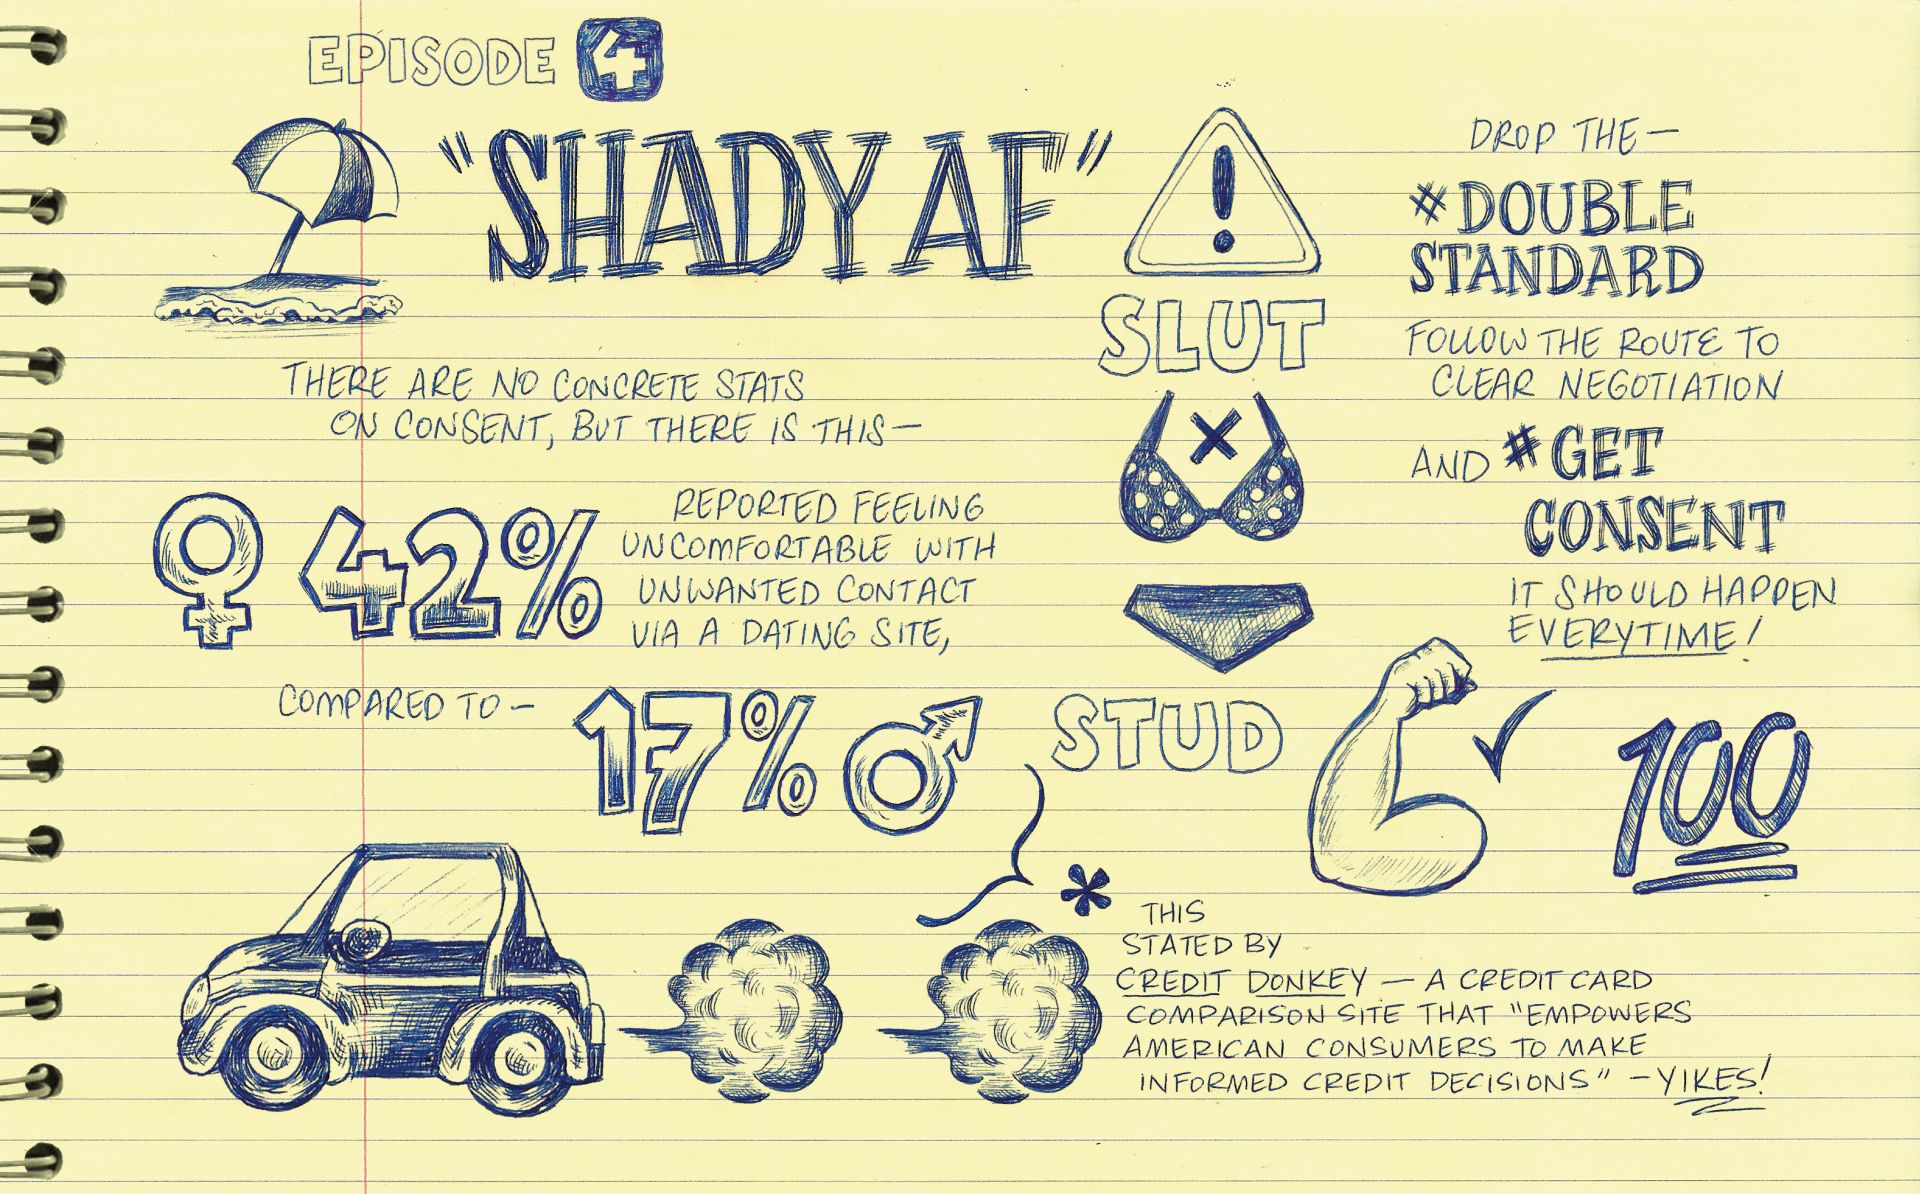 EPISODE 4
"SHADY AF"
THERE ARE NO CONCRETE STATS
ON CONSENT, BUT THERE IS THIS—
42%
REPORTED FEELING
UNCOMFORTABLE WITH
UNWANTED CONTACT
VIA A DATING SITE,
COMPARED TO —
17%
!
SLUT
X
STUD
DROP THE —
#DOUBLE
STANDARD
FOLLOW THE ROUTE TO
CLEAR NEGOTIATION
AND #GET
CONSENT
IT SHOULD HAPPEN
EVERYTIME!
100
*
THIS
STATED BY
CREDIT DONKEY — A CREDIT CARD
COMPARISON SITE THAT "EMPOWERS
AMERICAN CONSUMERS TO MAKE
INFORMED CREDIT DECISIONS" — YIKES!